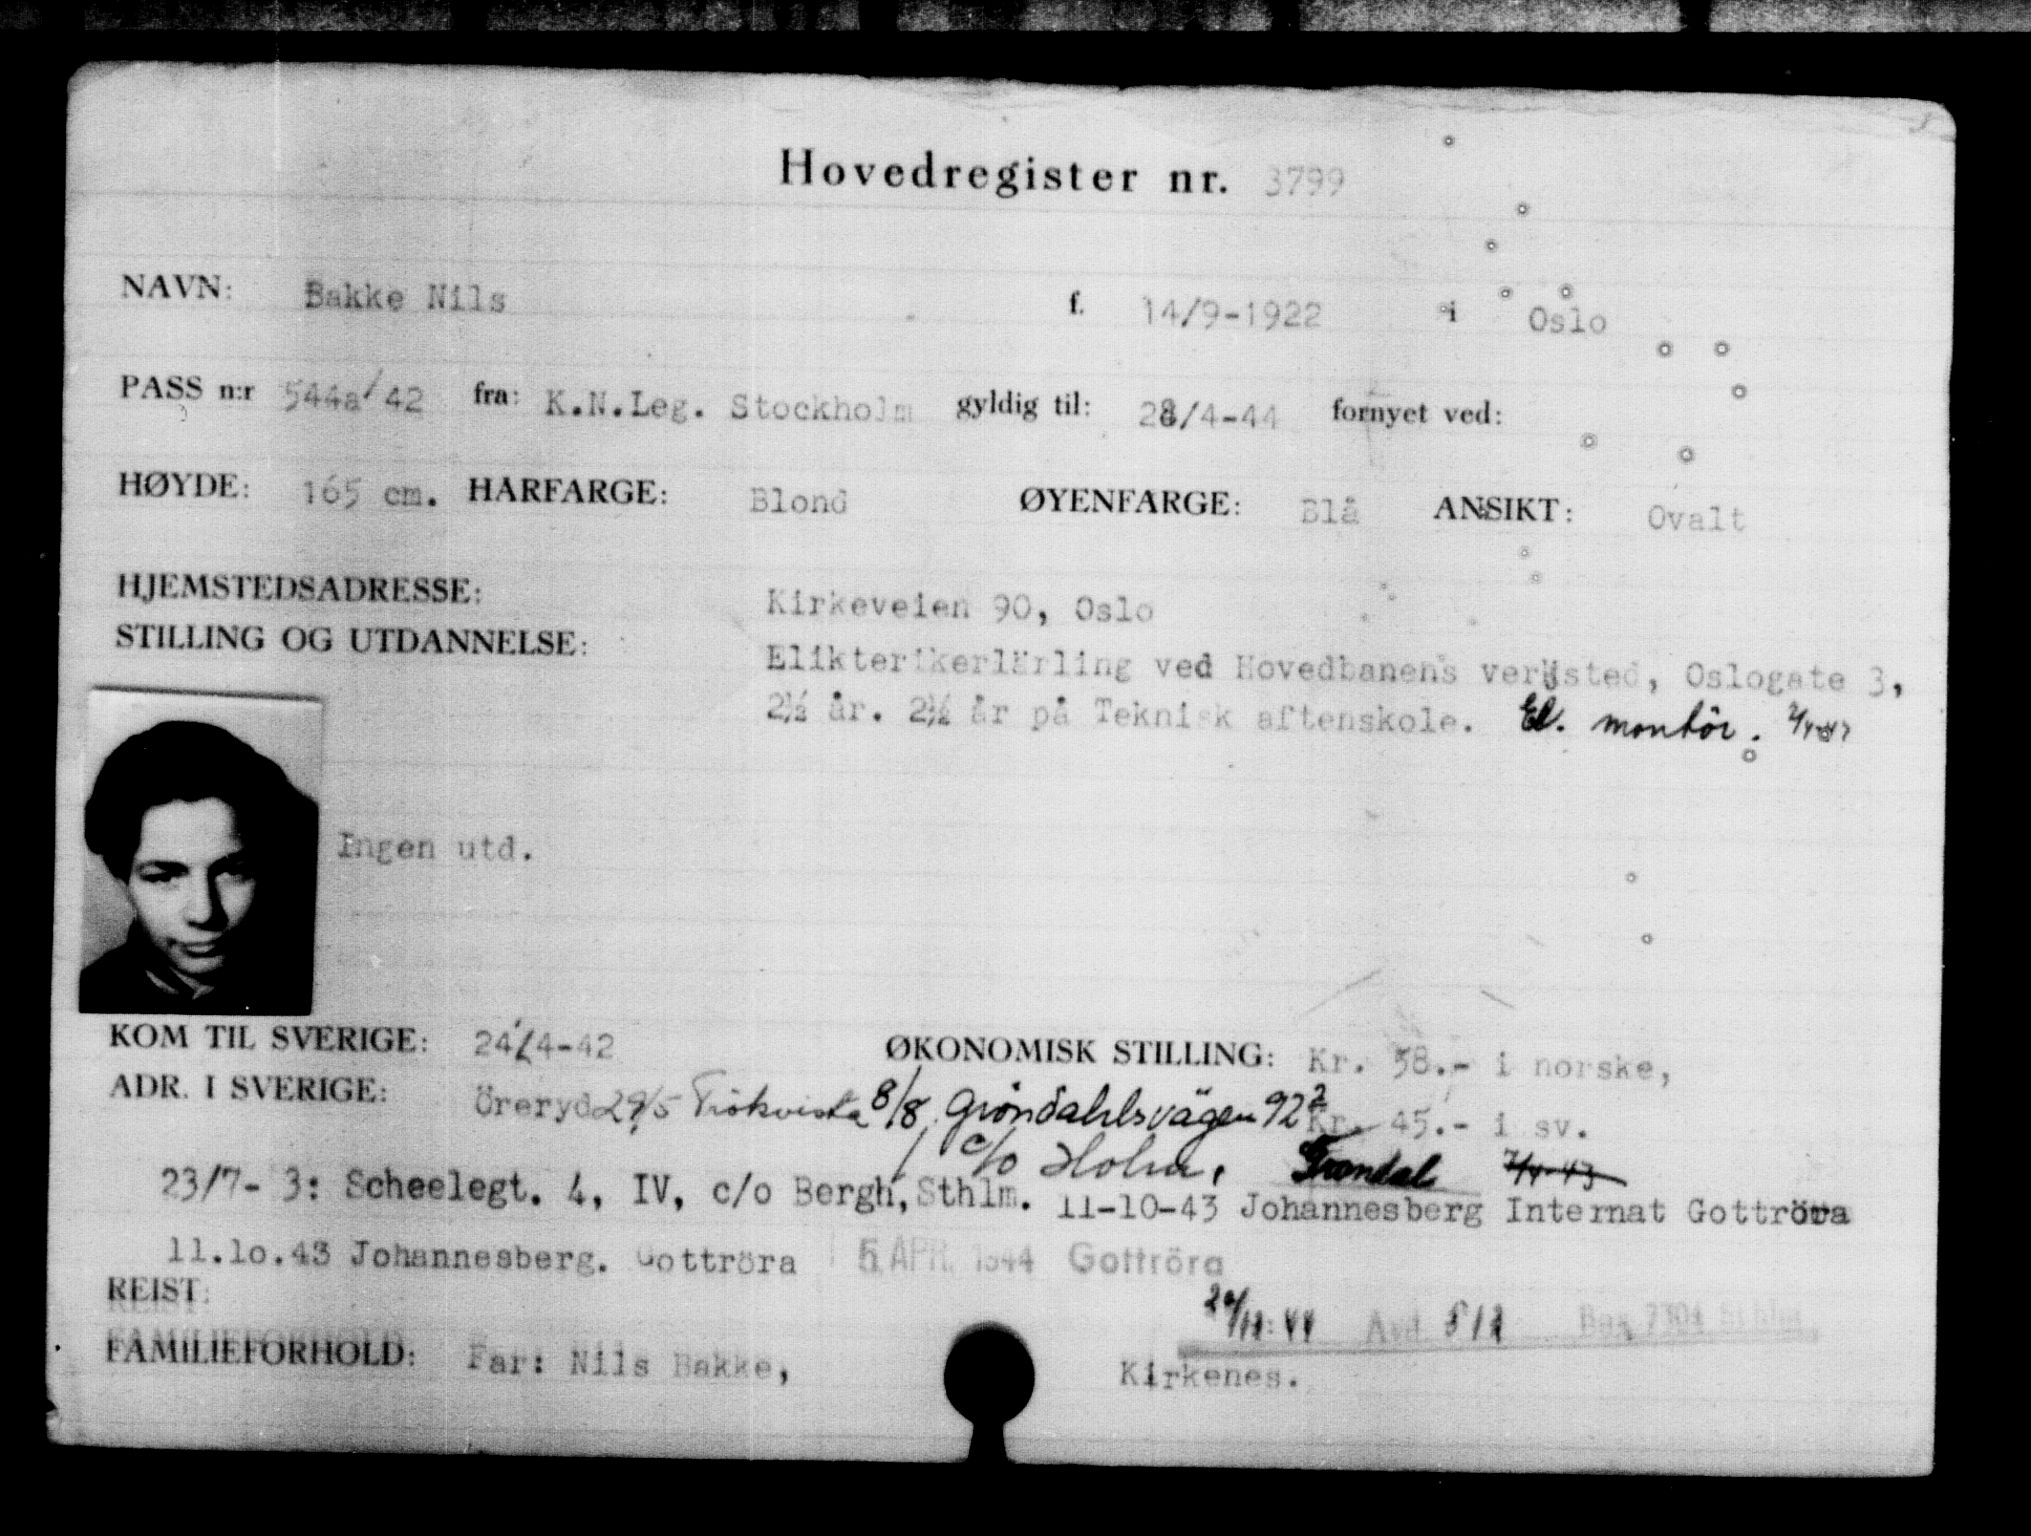 Hovedregister nr. 3799
NAVN: Bakke Nils f. 14/9-1922 i Oslo
PASS n:r 544a/42 fra: K.N.Leg. Stockholm gyldig til: 28/4-44 fornyet ved:
HØYDE: 165 cm. HÅRFARGE: Blond ØYENFARGE: Blå ANSIKT: Ovalt
HJEMSTEDSADRESSE: Kirkeveien 90, Oslo
STILLING OG UTDANNELSE: Elikterikerlärling ved Hovedbanens verksted, Oslogate 3,
2½ år. 2½ år på Teknisk aftenskole. El. montör.
Ingen utd.
KOM TIL SVERIGE: 24/4-42 ØKONOMISK STILLING: Kr. 58.- i norske,
ADR. I SVERIGE: Öreryd 29/5 8/8 Gröndahlsvägen 92² Kr. 45.- i sv.
c/o Holm, Gröndal 7/4-43
23/7- 3: Scheelegt. 4, IV, c/o Bergh, Sthlm. 11-10-43 Johannesberg Internat Gottröra
11.10.43 Johannesberg. Gottröra 5 APR. 1944 Gottröra
REIST: Avd 512 Box 7304 Sthlm
FAMILIEFORHOLD: Far: Nils Bakke, Kirkenes.